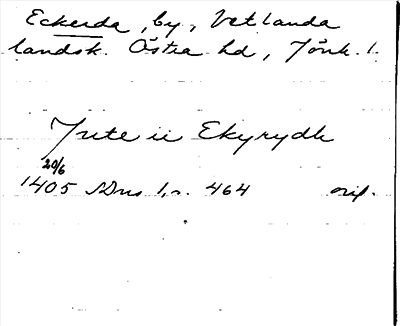 Eckerda, by, Vetlanda
landsk. Östra hd, Jönk. l.
Jute ii Ekyrydh
20/6
1405 SDns 1, n. 464 orig.